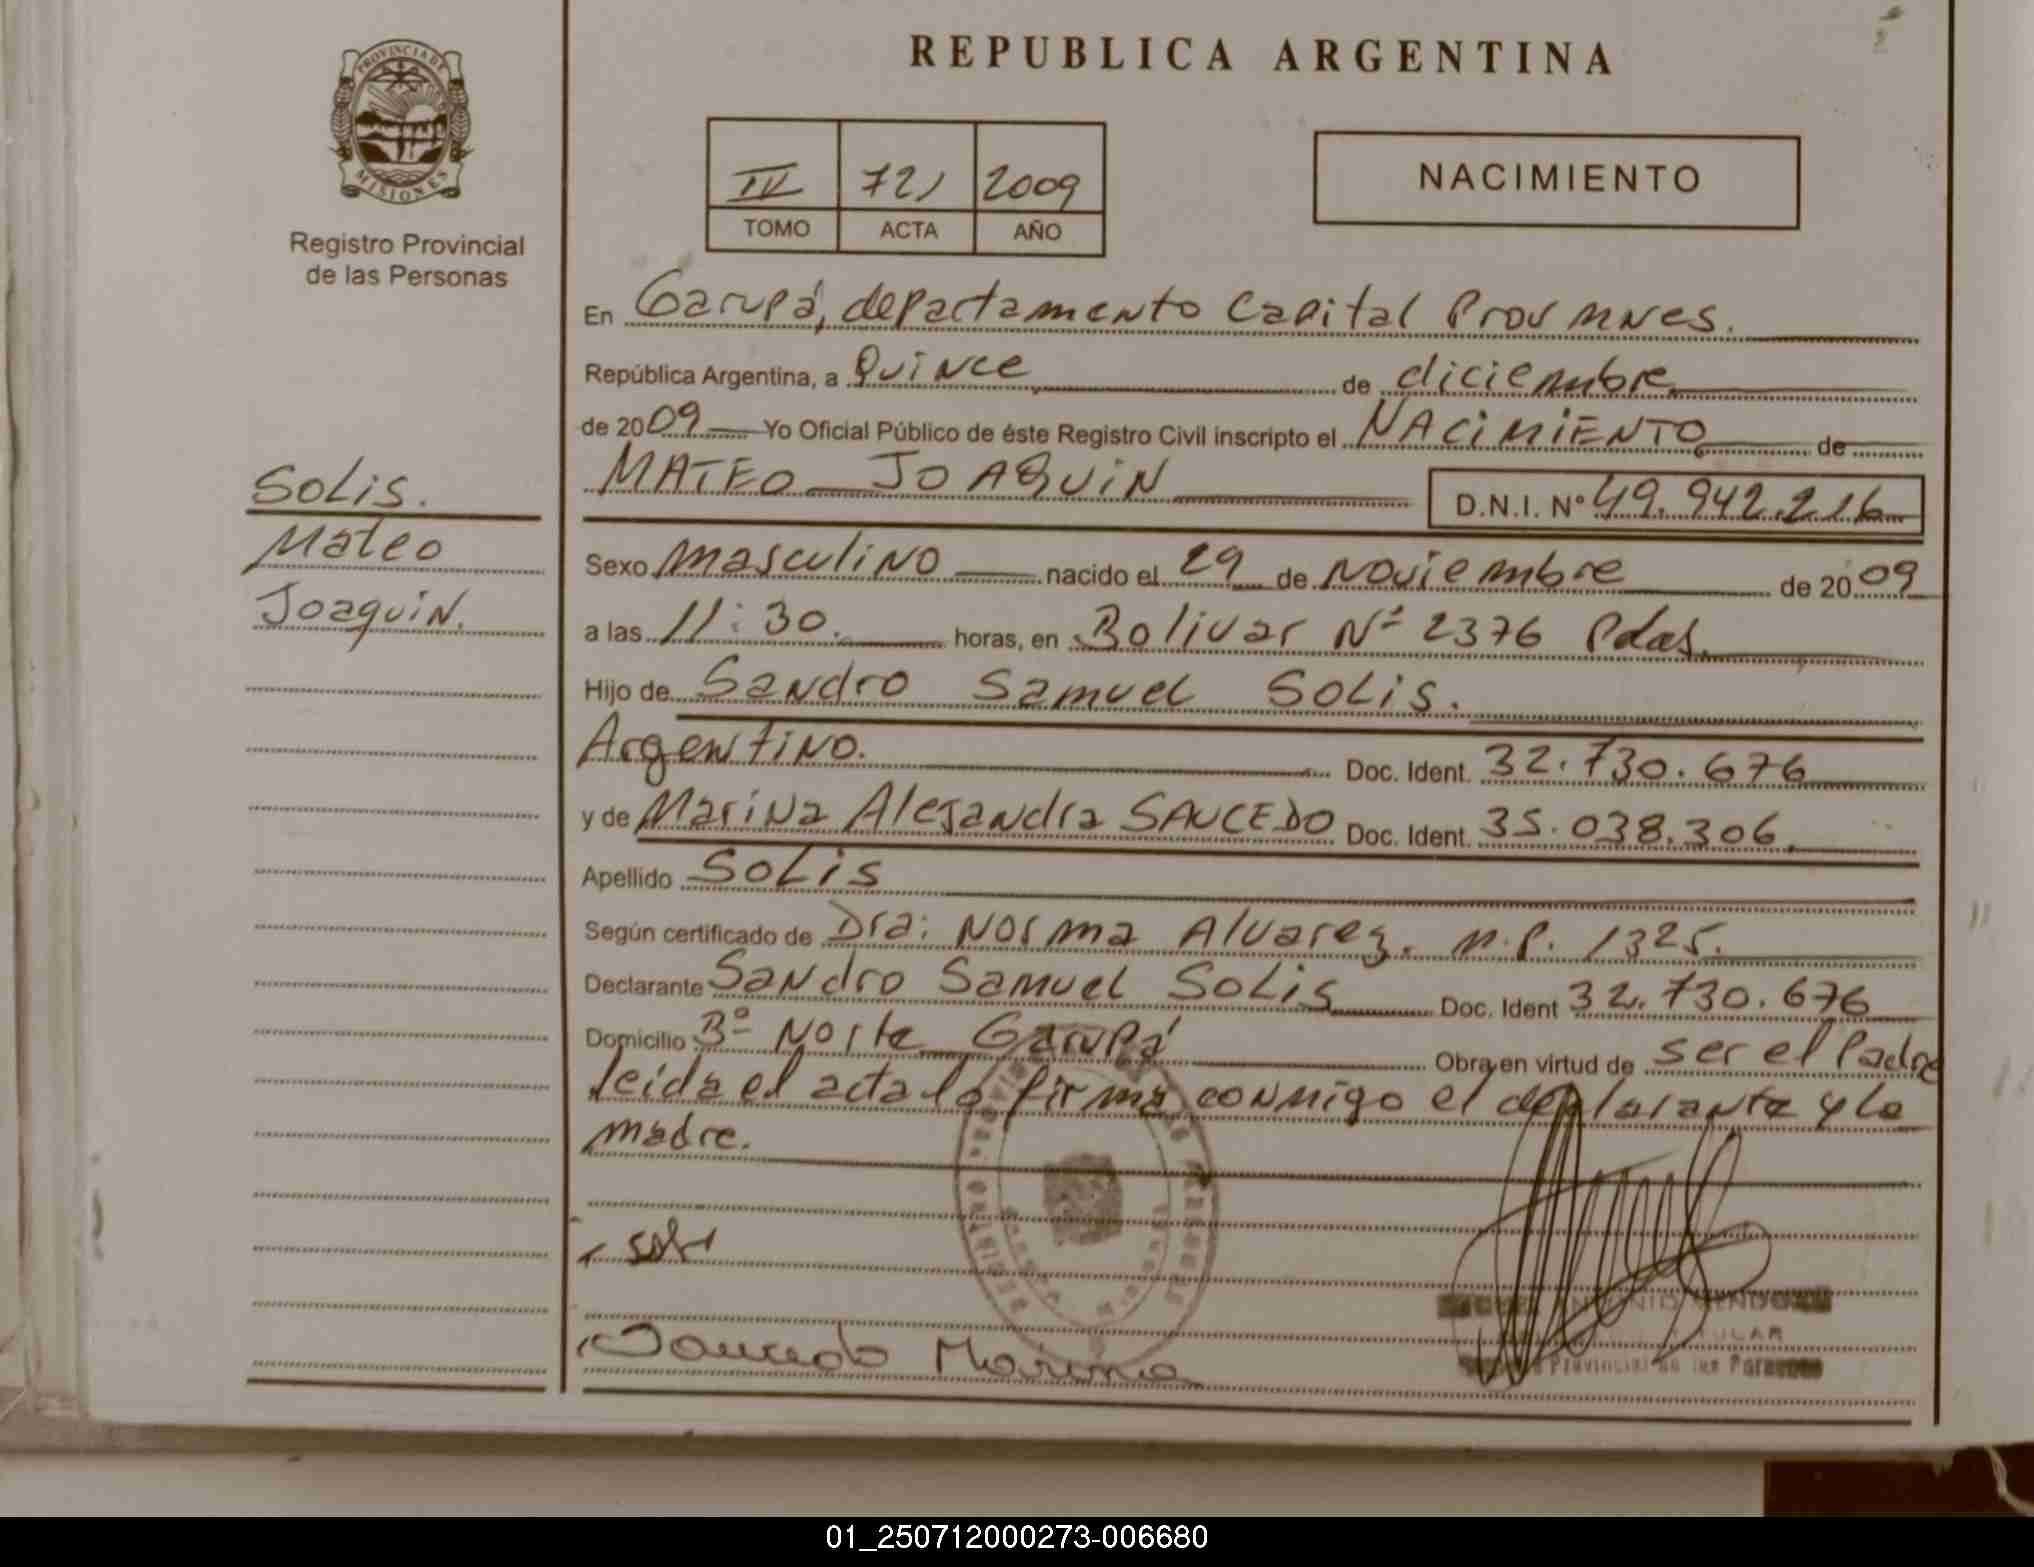 REPUBLICA ARGENTINA
PROVINCIA DE
MISIONES
Registro Provincial
de las Personas
IV 721 2009
TOMO ACTA AÑO
NACIMIENTO
En Garupá, departamento Capital Prov Mnes.
República Argentina, a Quince de diciembre
de 2009 Yo Oficial Público de éste Registro Civil inscripto el NACIMIENTO de
MATEO JOAQUIN D.N.I. Nº 49.942.216
Solis.
Mateo
Joaquin.
Sexo masculino nacido el 29 de noviembre de 2009
a las 11:30. horas, en Bolivar Nº 2376 Pdas.
Hijo de Sandro Samuel SOLIS.
Argentino. Doc. Ident. 32.730.676
y de Marina Alejandra SAUCEDO Doc. Ident. 35.038.306.
Apellido SOLIS
Según certificado de Dra: Norma Alvarez. M.P. 1325.
Declarante Sandro Samuel Solis Doc. Ident 32.730.676
Domicilio Bº Norte Garupá Obra en virtud de ser el Padre
leida el acta la firma conmigo el declarante y la
madre.
Saucedo Marina
Provincial de las Personas
01_250712000273-006680